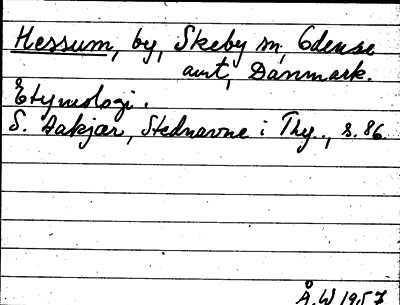 Hessum, by, Skeby sn, Odense
amt, Danmark.
Etymologi.
S. Aakjær, Stednavne i Thy., s. 86.
Å.W 1957